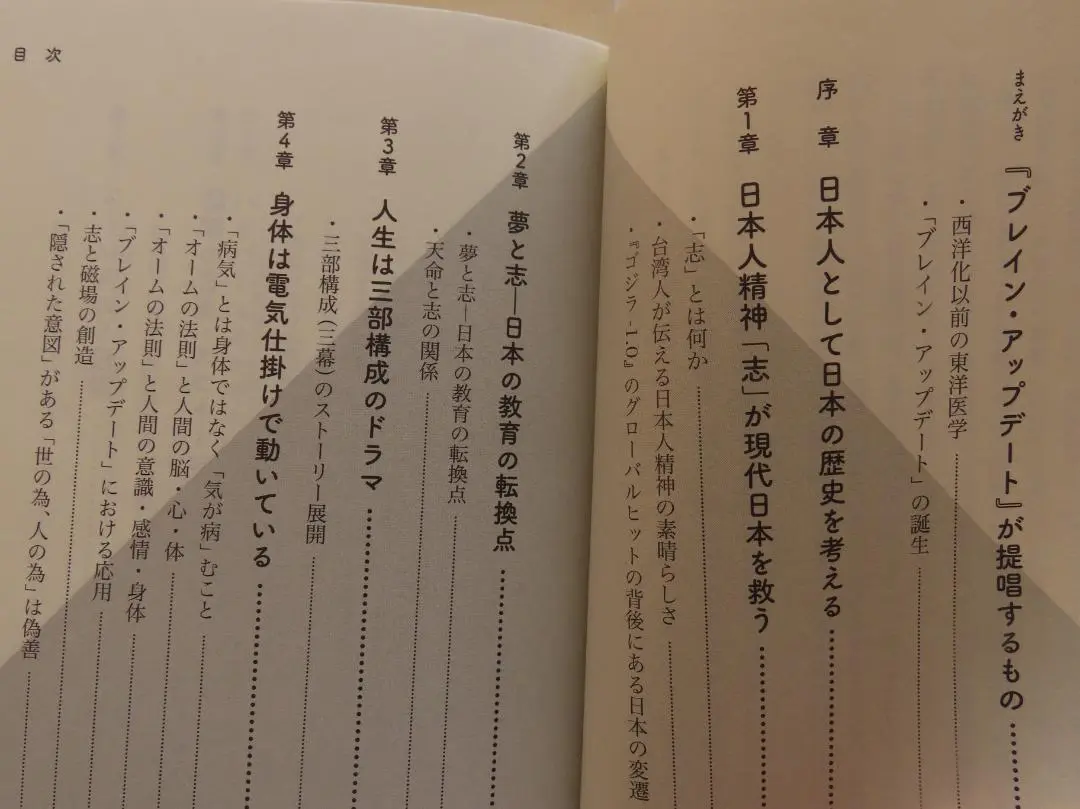 まえがき 『ブレイン・アップデート』が提唱するもの
・西洋化以前の東洋医学
・「ブレイン・アップデート」の誕生
序 章 日本人として日本の歴史を考える
第1章 日本人精神「志」が現代日本を救う
・「志」とは何か
・台湾人が伝える日本人精神の素晴らしさ
・『ゴジラ -1.0』のグローバルヒットの背後にある日本の変遷
目 次
第2章 夢と志―日本の教育の転換点
・夢と志―日本の教育の転換点
・天命と志の関係
第3章 人生は三部構成のドラマ
・三部構成(三幕)のストーリー展開
第4章 身体は電気仕掛けで動いている
・「病気」とは身体ではなく「気が病」むこと
・「オームの法則」と人間の脳・心・体
・「オームの法則」と人間の意識・感情・身体
・「ブレイン・アップデート」における応用
・志と磁場の創造
・「隠された意図」がある「世の為、人の為」は偽善